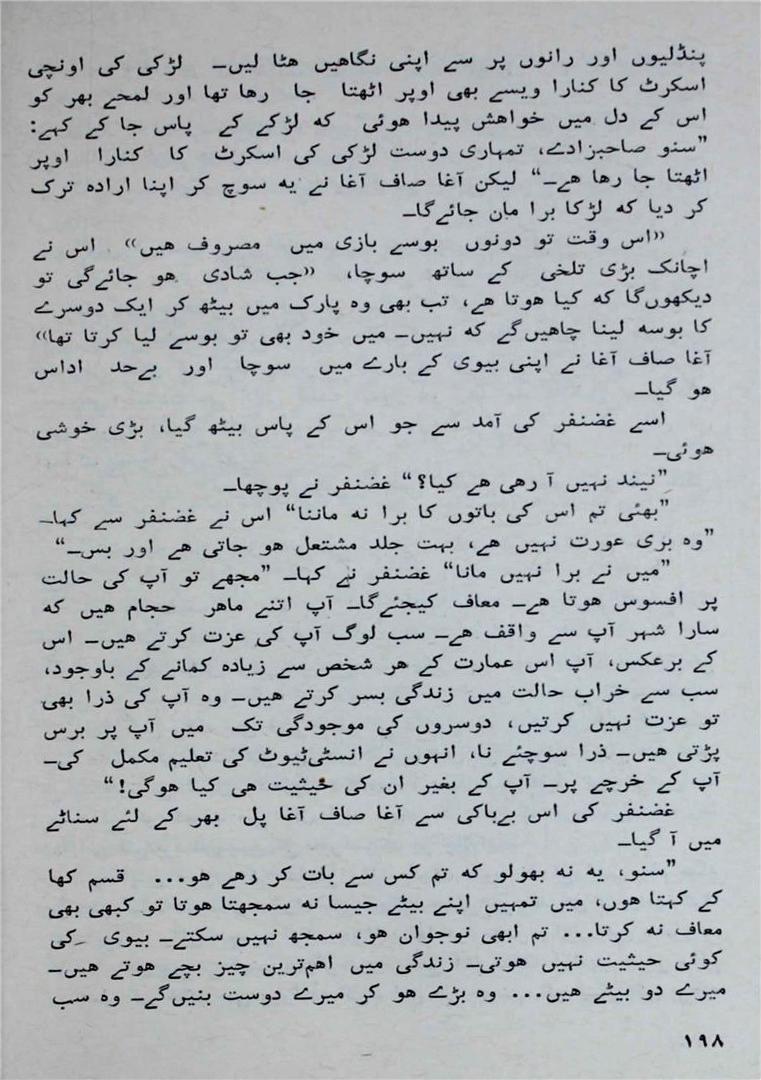 پنڈلیوں اور رانوں پر سے اپنی نگاهیں هٹا لیں۔ لڑکی کی اونچی
اسکرٹ کا کنارا ویسے بھی اوپر اٹھتا جا رها تھا اور لمحے بھر کو
اس کے دل میں خواهش پیدا هوئی که لڑکے کے پاس جا کے کہے:
”سنو صاحبزادے، تمہاری دوست لڑکی کی اسکرٹ کا کنارا اوپر
اٹھتا جا رها هے۔“ لیکن آغا صاف آغا نے یه سوچ کر اپنا ارادہ ترک
کر دیا که لڑکا برا مان جائےگا۔
«اس وقت تو دونوں بوسے بازی میں مصروف هیں» اس نے
اچانک بڑی تلخی کے ساتھ سوچا، «جب شادی هو جائےگی تو
دیکھوں گا که کیا هوتا هے، تب بھی وہ پارک میں بیٹھ کر ایک دوسرے
کا بوسه لینا چاهیں گے که نہیں۔ میں خود بھی تو بوسے لیا کرتا تھا»
آغا صاف آغا نے اپنی بیوی کے بارے میں سوچا اور بےحد اداس
هو گیا۔
اسے غضنفر کی آمد سے جو اس کے پاس بیٹھ گیا، بڑی خوشی
هوئی۔
”نیند نہیں آ رهی هے کیا؟“ غضنفر نے پوچھا۔
”بھئی تم اس کی باتوں کا برا نه ماننا“ اس نے غضنفر سے کہا۔
”وہ بری عورت نہیں هے، بہت جلد مشتعل هو جاتی هے اور بس۔“
”میں نے برا نہیں مانا“ غضنفر نے کہا۔ ”مجھے تو آپ کی حالت
پر افسوس هوتا هے۔ معاف کیجئےگا۔ آپ اتنے ماهر حجام هیں که
سارا شہر آپ سے واقف هے۔ سب لوگ آپ کی عزت کرتے هیں۔ اس
کے برعکس، آپ اس عمارت کے هر شخص سے زیادہ کمانے کے باوجود،
سب سے خراب حالت میں زندگی بسر کرتے هیں۔ وہ آپ کی ذرا بھی
تو عزت نہیں کرتیں، دوسروں کی موجودگی تک میں آپ پر برس
پڑتی هیں۔ ذرا سوچئے نا، انہوں نے انسٹی ٹیوٹ کی تعلیم مکمل کی۔
آپ کے خرچے پر۔ آپ کے بغیر ان کی حیثیت هی کیا هوگی!“
غضنفر کی اس بےباکی سے آغا صاف آغا پل بھر کے لئے سناٹے
میں آ گیا۔
”سنو، یه نه بھولو که تم کس سے بات کر رهے هو... قسم کھا
کے کہتا هوں، میں تمہیں اپنے بیٹے جیسا نه سمجھتا هوتا تو کبھی بھی
معاف نه کرتا... تم ابھی نوجوان هو، سمجھ نہیں سکتے۔ بیوی کی
کوئی حیثیت نہیں هوتی۔ زندگی میں اهم ترین چیز بچے هوتے هیں۔
میرے دو بیٹے هیں... وہ بڑے هو کر میرے دوست بنیں گے۔ وہ سب
۱۹۸